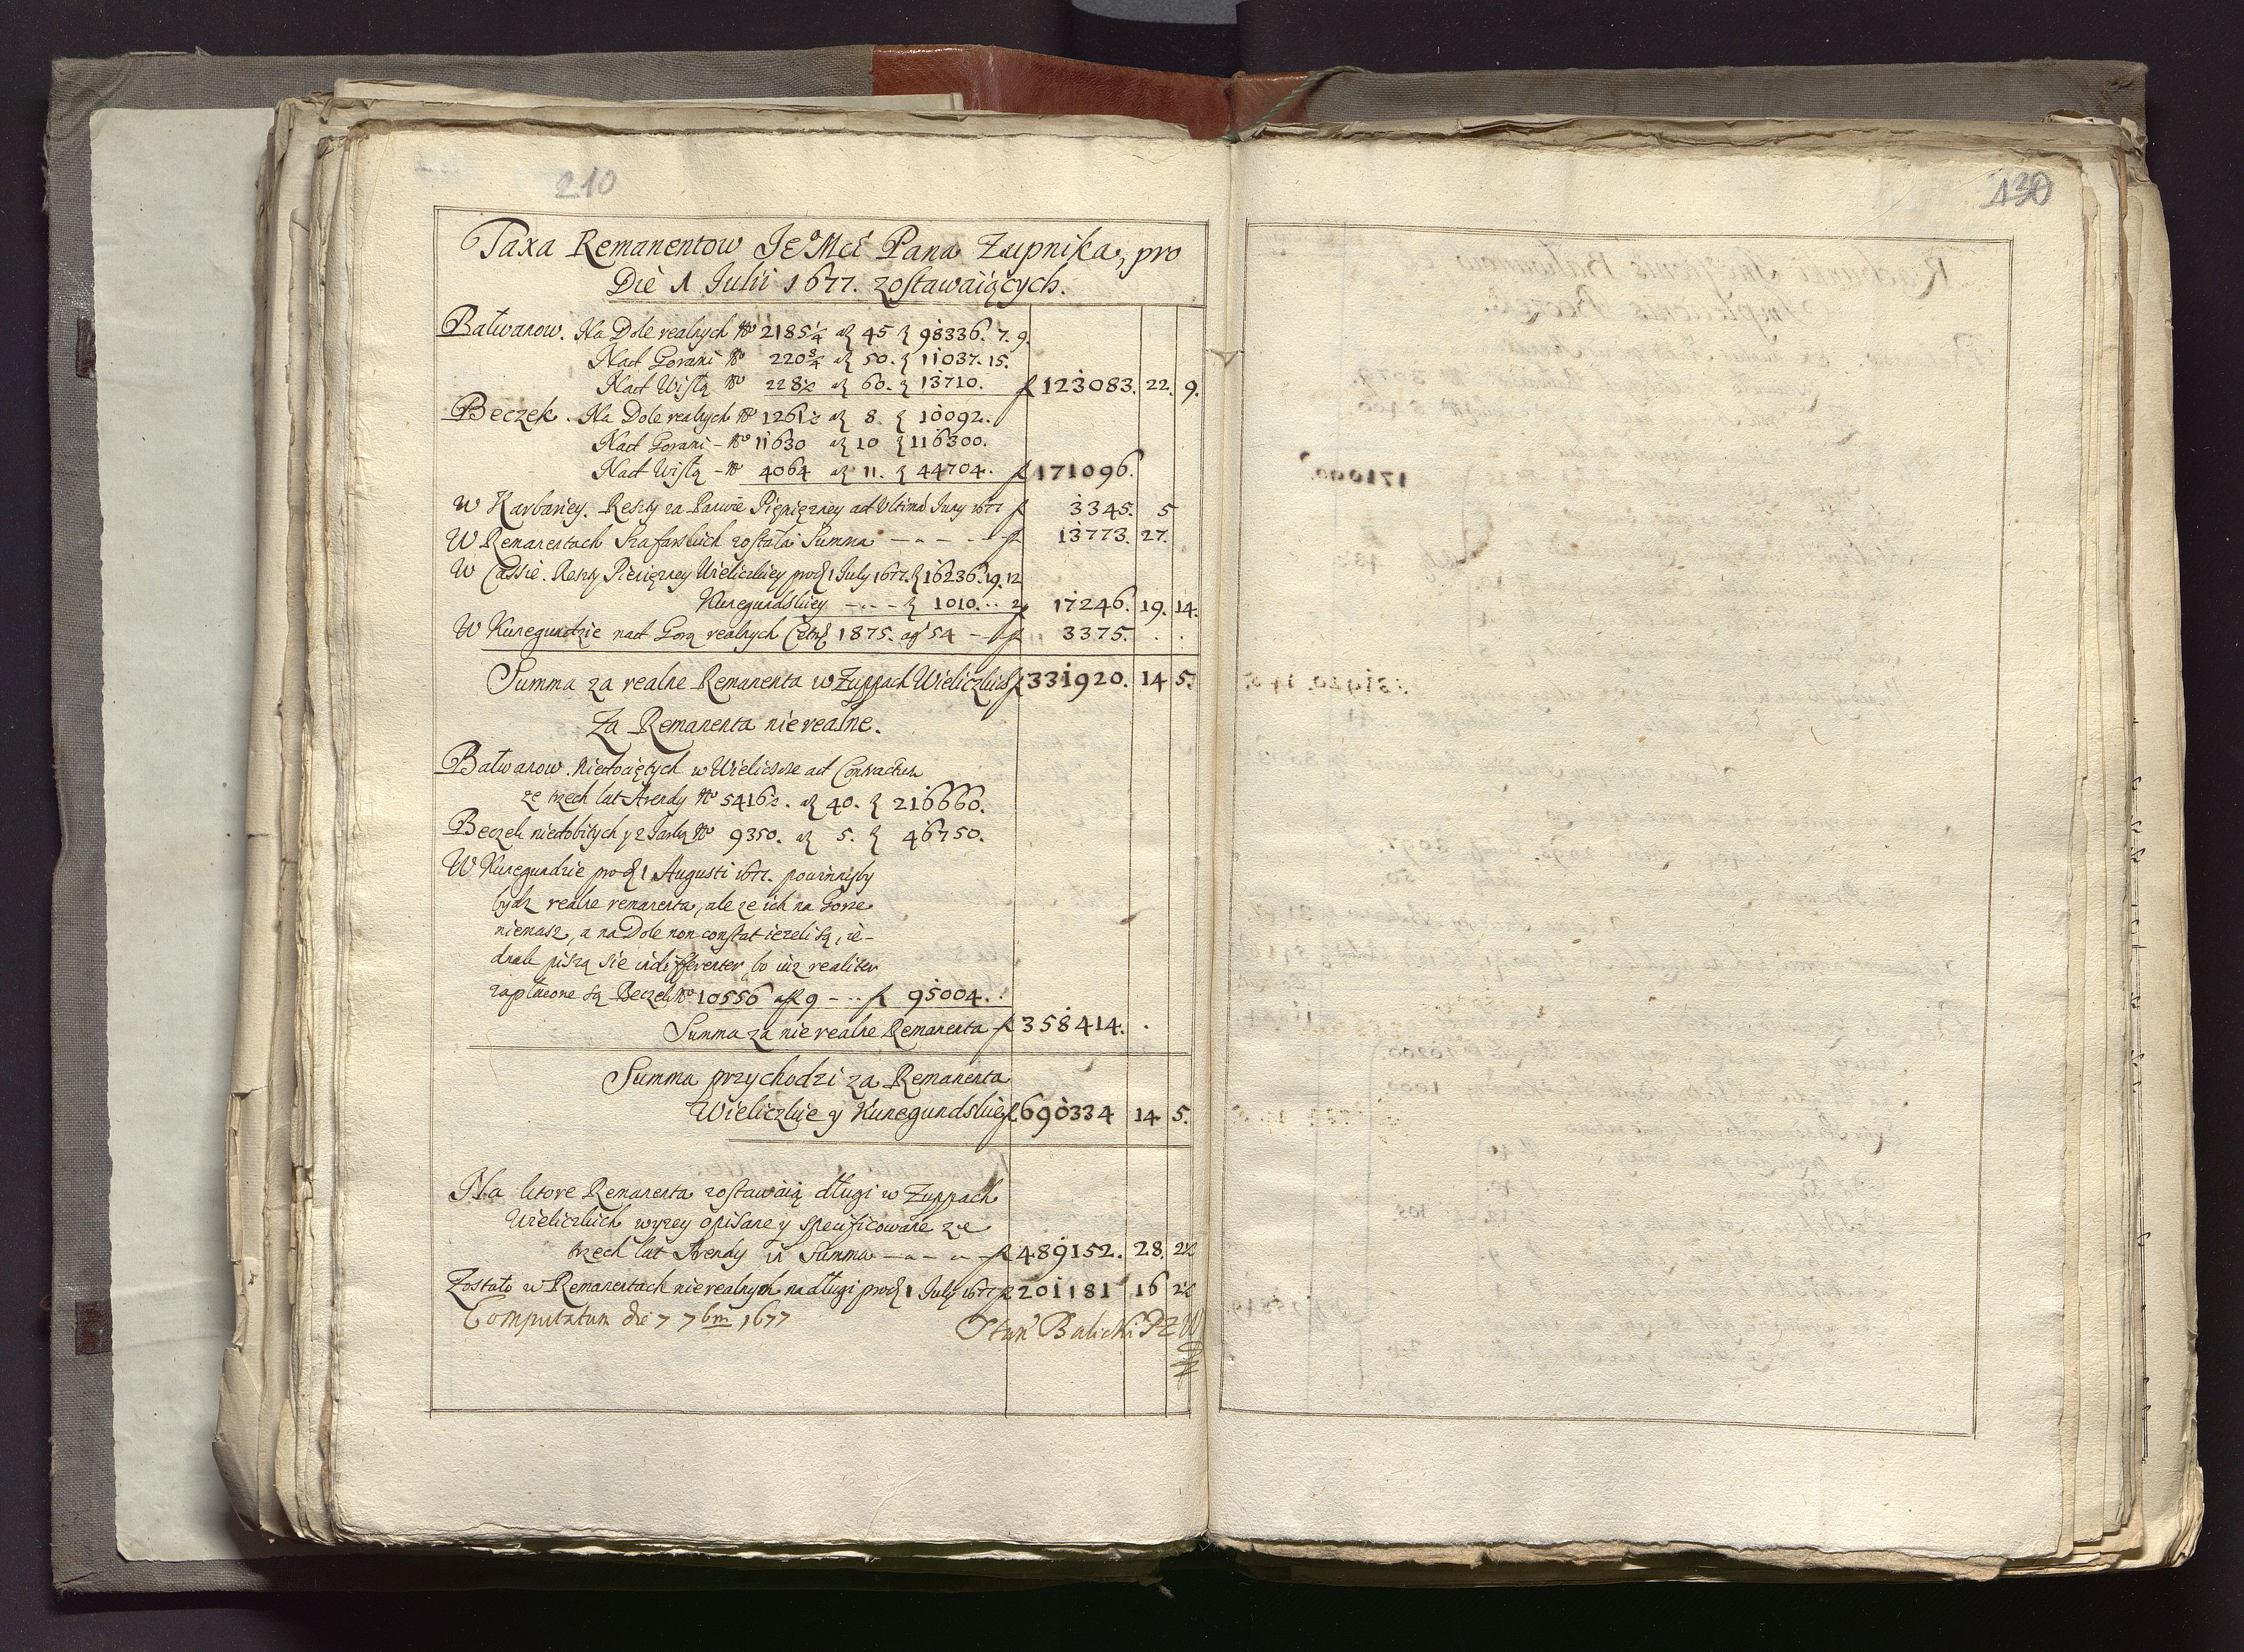 210
Taxa Remanentow JEoMci Pana Zupnika, pro
Die 1 Julii 1677. zostawaiących.
Bałwanow. Na Dole realnych No 2185¼ a f 45 f 98336. 7. 9.
Nad Gorami No 220¾ a f 50. f 11037. 15.
Nad Wisłą No 228½ a f 60. f 13710. f 123083. 22. 9.
Beczek. Na Dole realnych No 1261½ a f 8. f 10092.
Nad Gorami - No 11630 a f 10 f 116300.
Nad Wisłą - No 4064 a f 11. f 44704. f 171096.
W Karbariey. Reszty za Pienięzney ad Ultimā Juny 1677 f 3345. 5
W Remanentach Szafarskich została Summa - - - - f 13773. 27.
W Cassie. Reszty Pieniężney Wieliczkiey pro d 1 July 1677. f 16236. 19. 12
Kunegundskiey - - - f 1010. .. 2 f 17246. 19. 14.
W Kunegundzie nad Gorą realnych Cetnr 1875. a g 54 - f 3375. . .
Summa za realne Remanenta w Zuppach Wieliczkich f 331920. 14 5.
Za Remanenta nierealne.
Bałwanow. Niedociętych w Wieliczce ad Contractum
ze trzech lat Arendy No 5416½. a f 40. f 216660.
Beczek niedobitych y z No 9350. a f 5. f 46750.
W Kunegundzie pro d 1 Augusti 1677. powinnyby
bydz realne remanenta, ale ze ich na Gorze
niemasz, a na Dole non constat iezeli są, ie-
dnak piszą sie indifferenter, bo iuz realiter
zapłacone są Beczek No 10556 a f 9 - .. f 95004. .
Summa za nierealne Remanenta f 358414. .
Summa przychodzi za Remanenta
Wieliczkie y Kunegundskie f 690334 14 5.
Na ktore Remanenta zostawaią długi w Zuppach
Wieliczkich wyzey opisane y specificowane ze
trzech lat Arendy in Summa - - - - f 489152. 28. 2½
Zostało w Remanentach nierealnych na długi pro d 1 July 1677 f 201181 16 2½
Computatum die 7 7bris 1677
Stan Balicki PZW
130